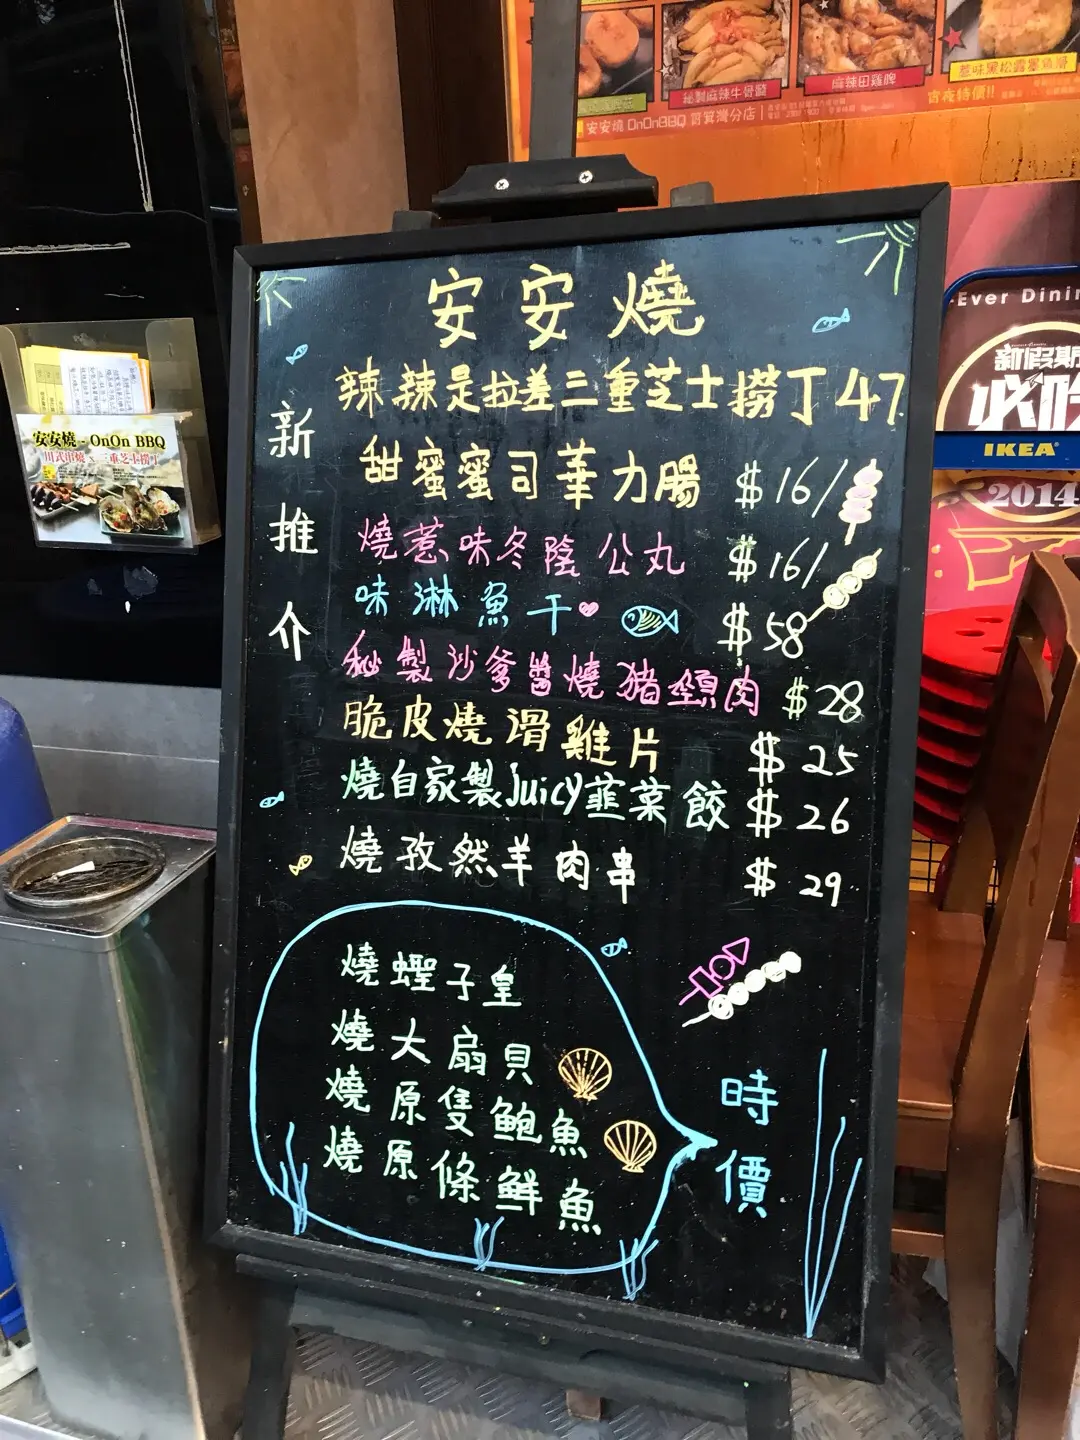 秘製麻辣牛骨髓
麻辣田雞脾
惹味黑松露墨魚滑
宵夜特價!!
安安燒 OnOnBBQ 筲箕灣分店
安安燒
新推介
辣辣是拉差三重芝士撈丁 47
甜蜜蜜司華力腸 $16/
燒惹味冬陰公丸 $16/
味淋魚干 $58
秘製沙爹醬燒豬頸肉 $28
脆皮燒滑雞片 $25
燒自家製Juicy韮菜餃 $26
燒孜然羊肉串 $29
燒蟶子皇
燒大扇貝
燒原隻鮑魚
燒原條鮮魚
時價
安安燒 - OnOn BBQ
川式串燒 x 三重芝士撈丁
-Ever Dinin
新假期
必吃
IKEA
2014